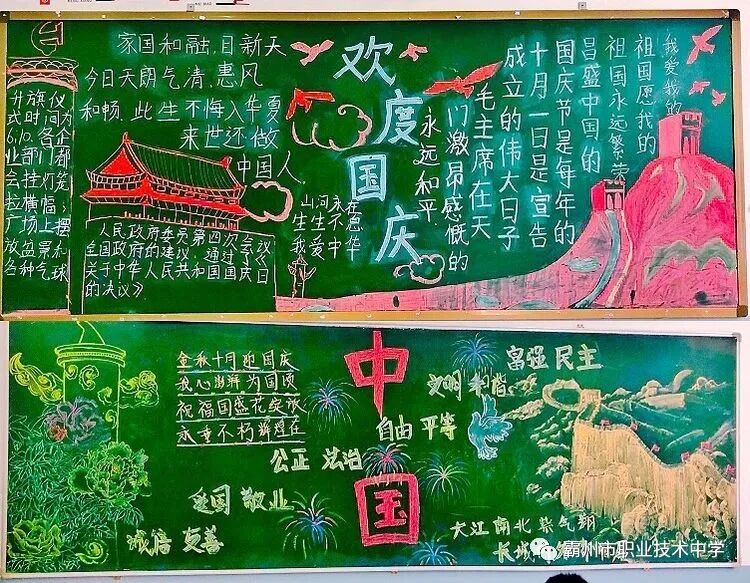 升旗仪
式时间为
6.10.各企
业部门都
会挂灯笼
拉横幅;
广场上摆
放盆景和
各种气球
家国和融,目新天
今日天朗气清,惠风
和畅,此生不悔入华夏
来世还做
中国人。
人民政府委员第四次会议
全国政府的建议,通过《
关于中华人民共和国国庆日
的决议》
欢度国庆
山河永在
生生不息
我爱中华
永远和平
们激昂感慨的
毛主席在天
成立的伟大日子
十月一日是宣告
国庆节是每年的
昌盛中国的
祖国永远繁荣
祖国愿我的
我爱我的
金秋十月迎国庆
我心澎湃为国颂
祝福国盛花绽放
永垂不朽辉煌在
中国
富强 民主
文明 和谐
自由 平等
公正 法治
爱国 敬业
诚信 友善
大江南北
长城
霸州市职业技术中学